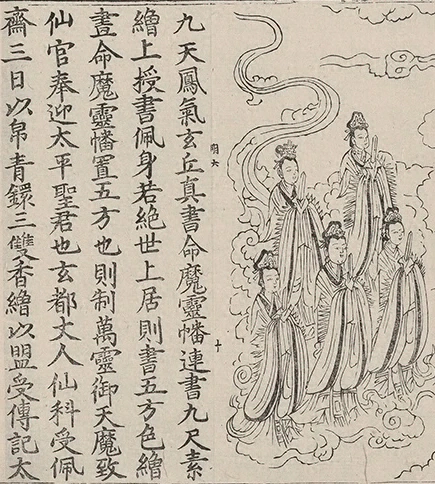 九天鳳氣玄丘真書命魔靈幡連書九尺素
繒上授書佩身若絶世上居則書五方色繒
晝命魔靈幡置五方也則制萬靈御天魔致
仙官奉迎太平聖君也玄都丈人仙科受佩
齋三日以帛青鐶三雙香繒以盟受傳記太